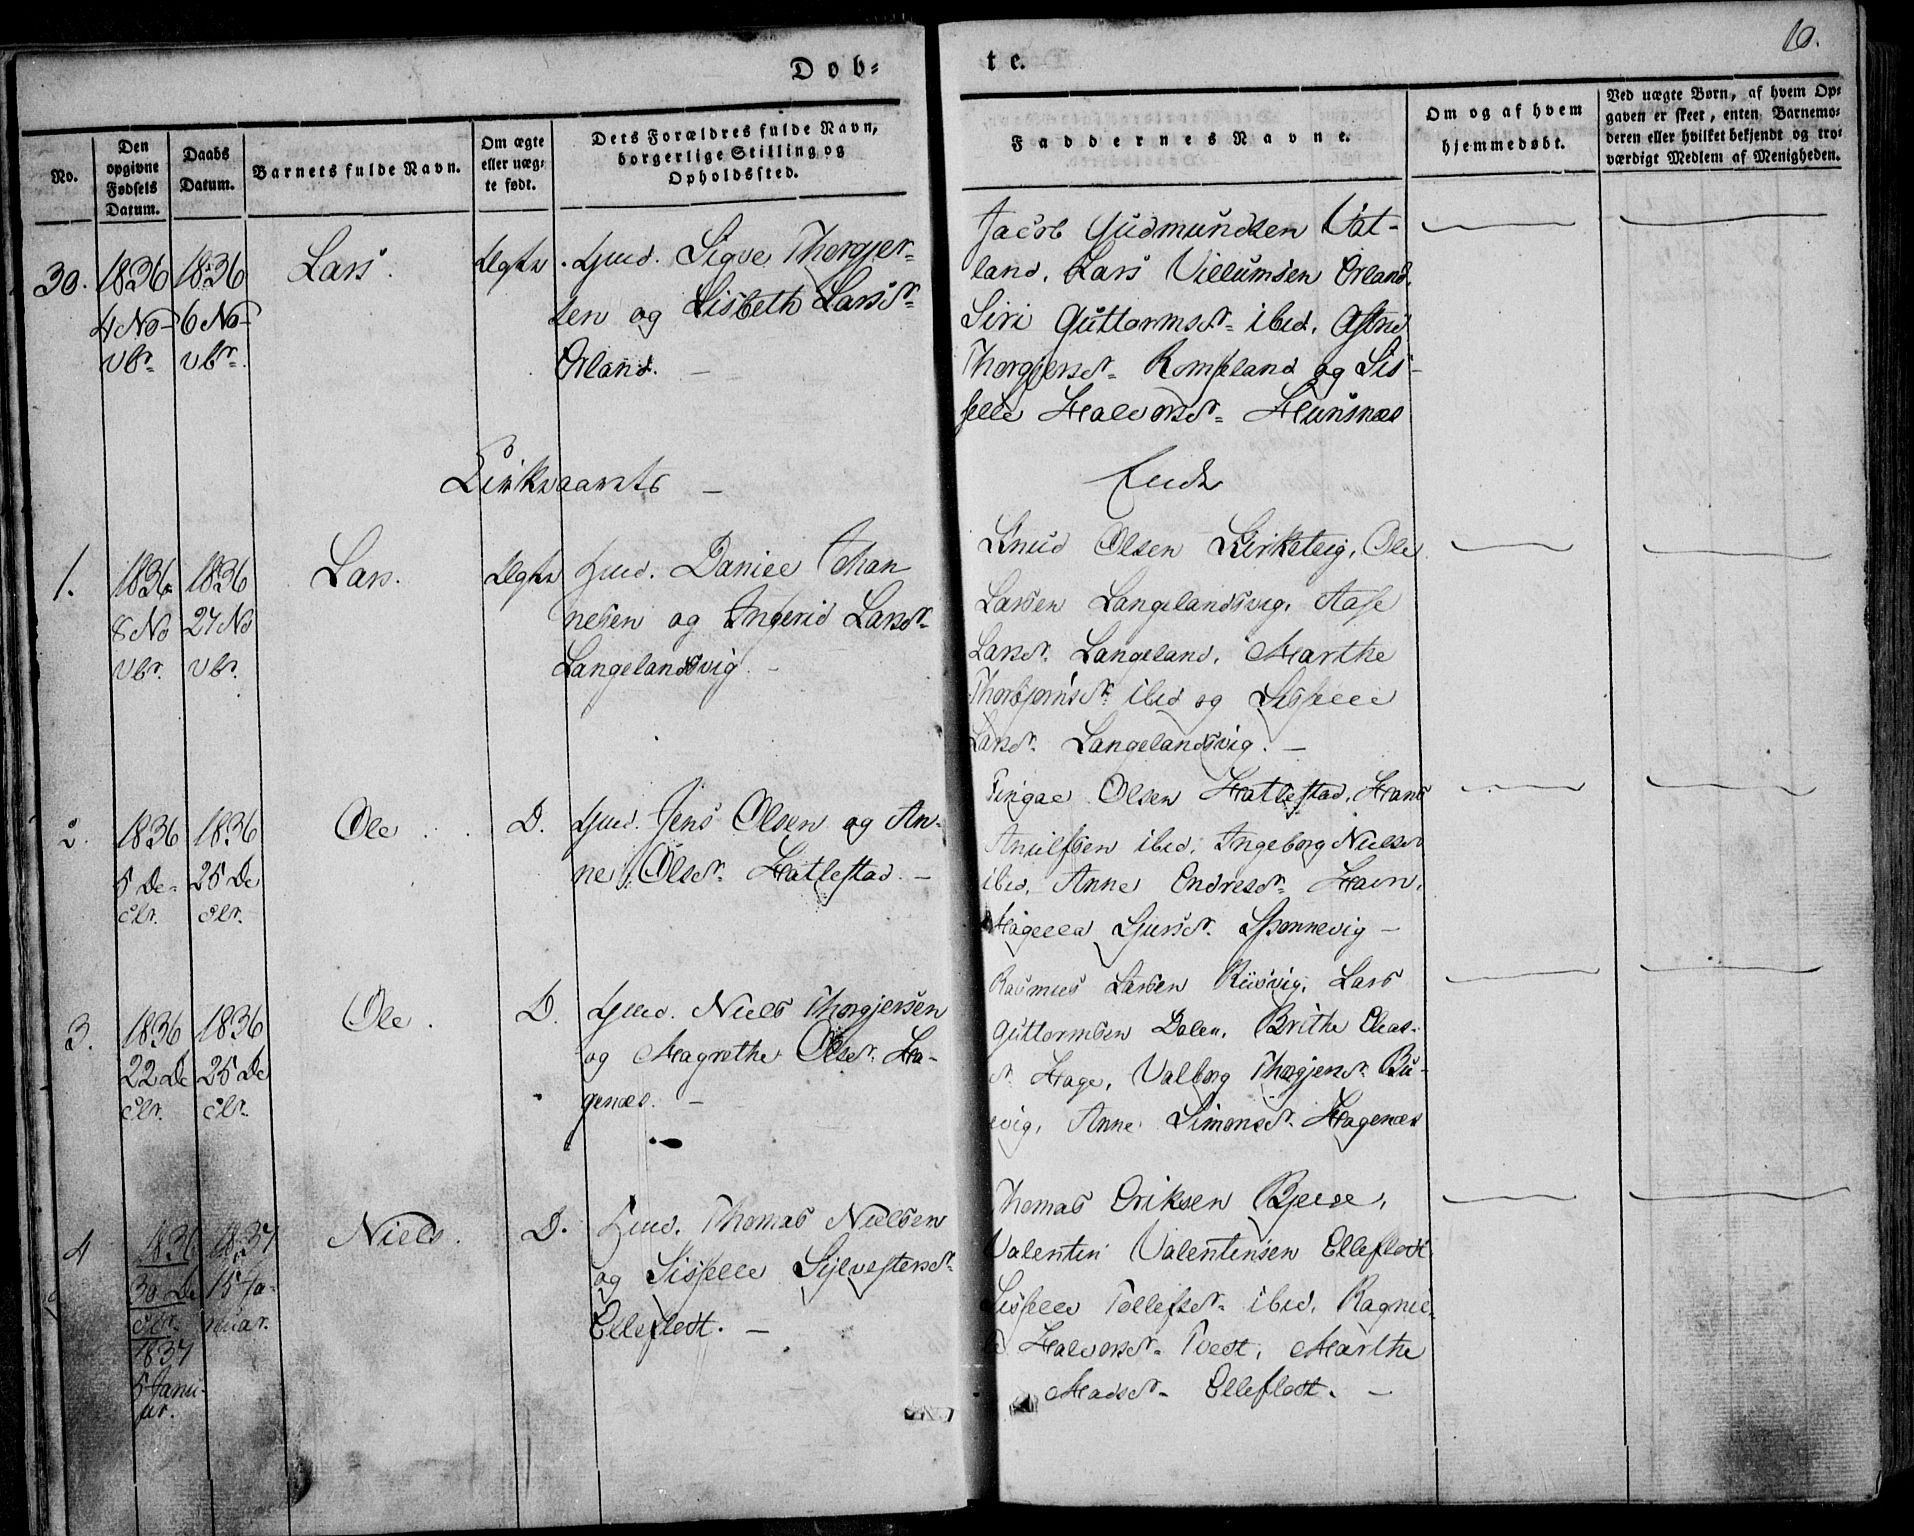 10.
Døb=
te.
No.
Den opgivne Fødsels Datum.
Daabs Datum.
Barnets fulde Navn.
Om ægte eller uæg=te født.
Dets Forældres fulde Navn, borgerlige Stilling og Opholdssted.
Faddernes Navne.
Om og af hvem hjemmedøbt.
Ved uægte Børn, af hvem Op=gaven er skeet, enten Barnemo=deren eller hvilket bekjendt og tro=værdigt Medlem af Menigheden.
30.
1836
4 No-
vbr.
1836
6 No-
vbr.
Lars.
Sigve Thorgjer-
sen og Lisbeth Larsdr.
Ørland.
Jacob Gudmundsen Vat-
land, Lars Villumsen Ørland,
Siri Guttormsdr. ibid,
Thorgjersdr. Rompland og Sis-
selle Halvorsdr. Hunsnæs
Kirkeaarets
Ende
1.
1836
8 No
vbr.
1836
27 No
vbr.
Lars.
Gmd. Daniel Johan
nesen og Ingerid Larsdr.
Langelandsvig.
Knud Olsen Kirketeig, Ole
Larsen Langelandsvig, Aase
Larsdr. Langeland, Marthe
Thorbjørnsdr. ibid og Sisselle
Larsdr. Langelandsvig.
2.
1836
5 De-
cbr.
1836
25 De
cbr.
Ole
D.
Gmd. Jens Olsen og An-
ne Olsdr. Hatlestad.
Olsen Hatlestad, Hans
ibid, Ingeborg Nielsdr
ibid, Anne Endresdr. Havn,
3.
1836
22 De
cbr.
1836
25 De
cbr.
Ole.
D.
Gmd. Niels Thorgjersen
og Magrethe Olsdr. Ha-
genæs.
Rasmus Larsen Riisvig, Lars
Guttormsen Dalen, Brithe Elias-
dr. Hage, Valborg Thorgjersdr. Bu-
vig, Anne Simonsdr. Hagenæs
4
1836
30 De
cbr.
1837
5 Janu-
ar.
1837
15 Ja-
nuar.
Niels.
D.
Gmd. Thomas Nielsen
og Sisselle Sylvestersdr.
Elleflodt.
Thomas Eriksen
Valentin Valentinsen Elleflodt
Sisselle Tollefsdr. ibid, Ragnil-
d Halvorsdr. Tvedt, Marthe
Madsdr. Elleflodt.